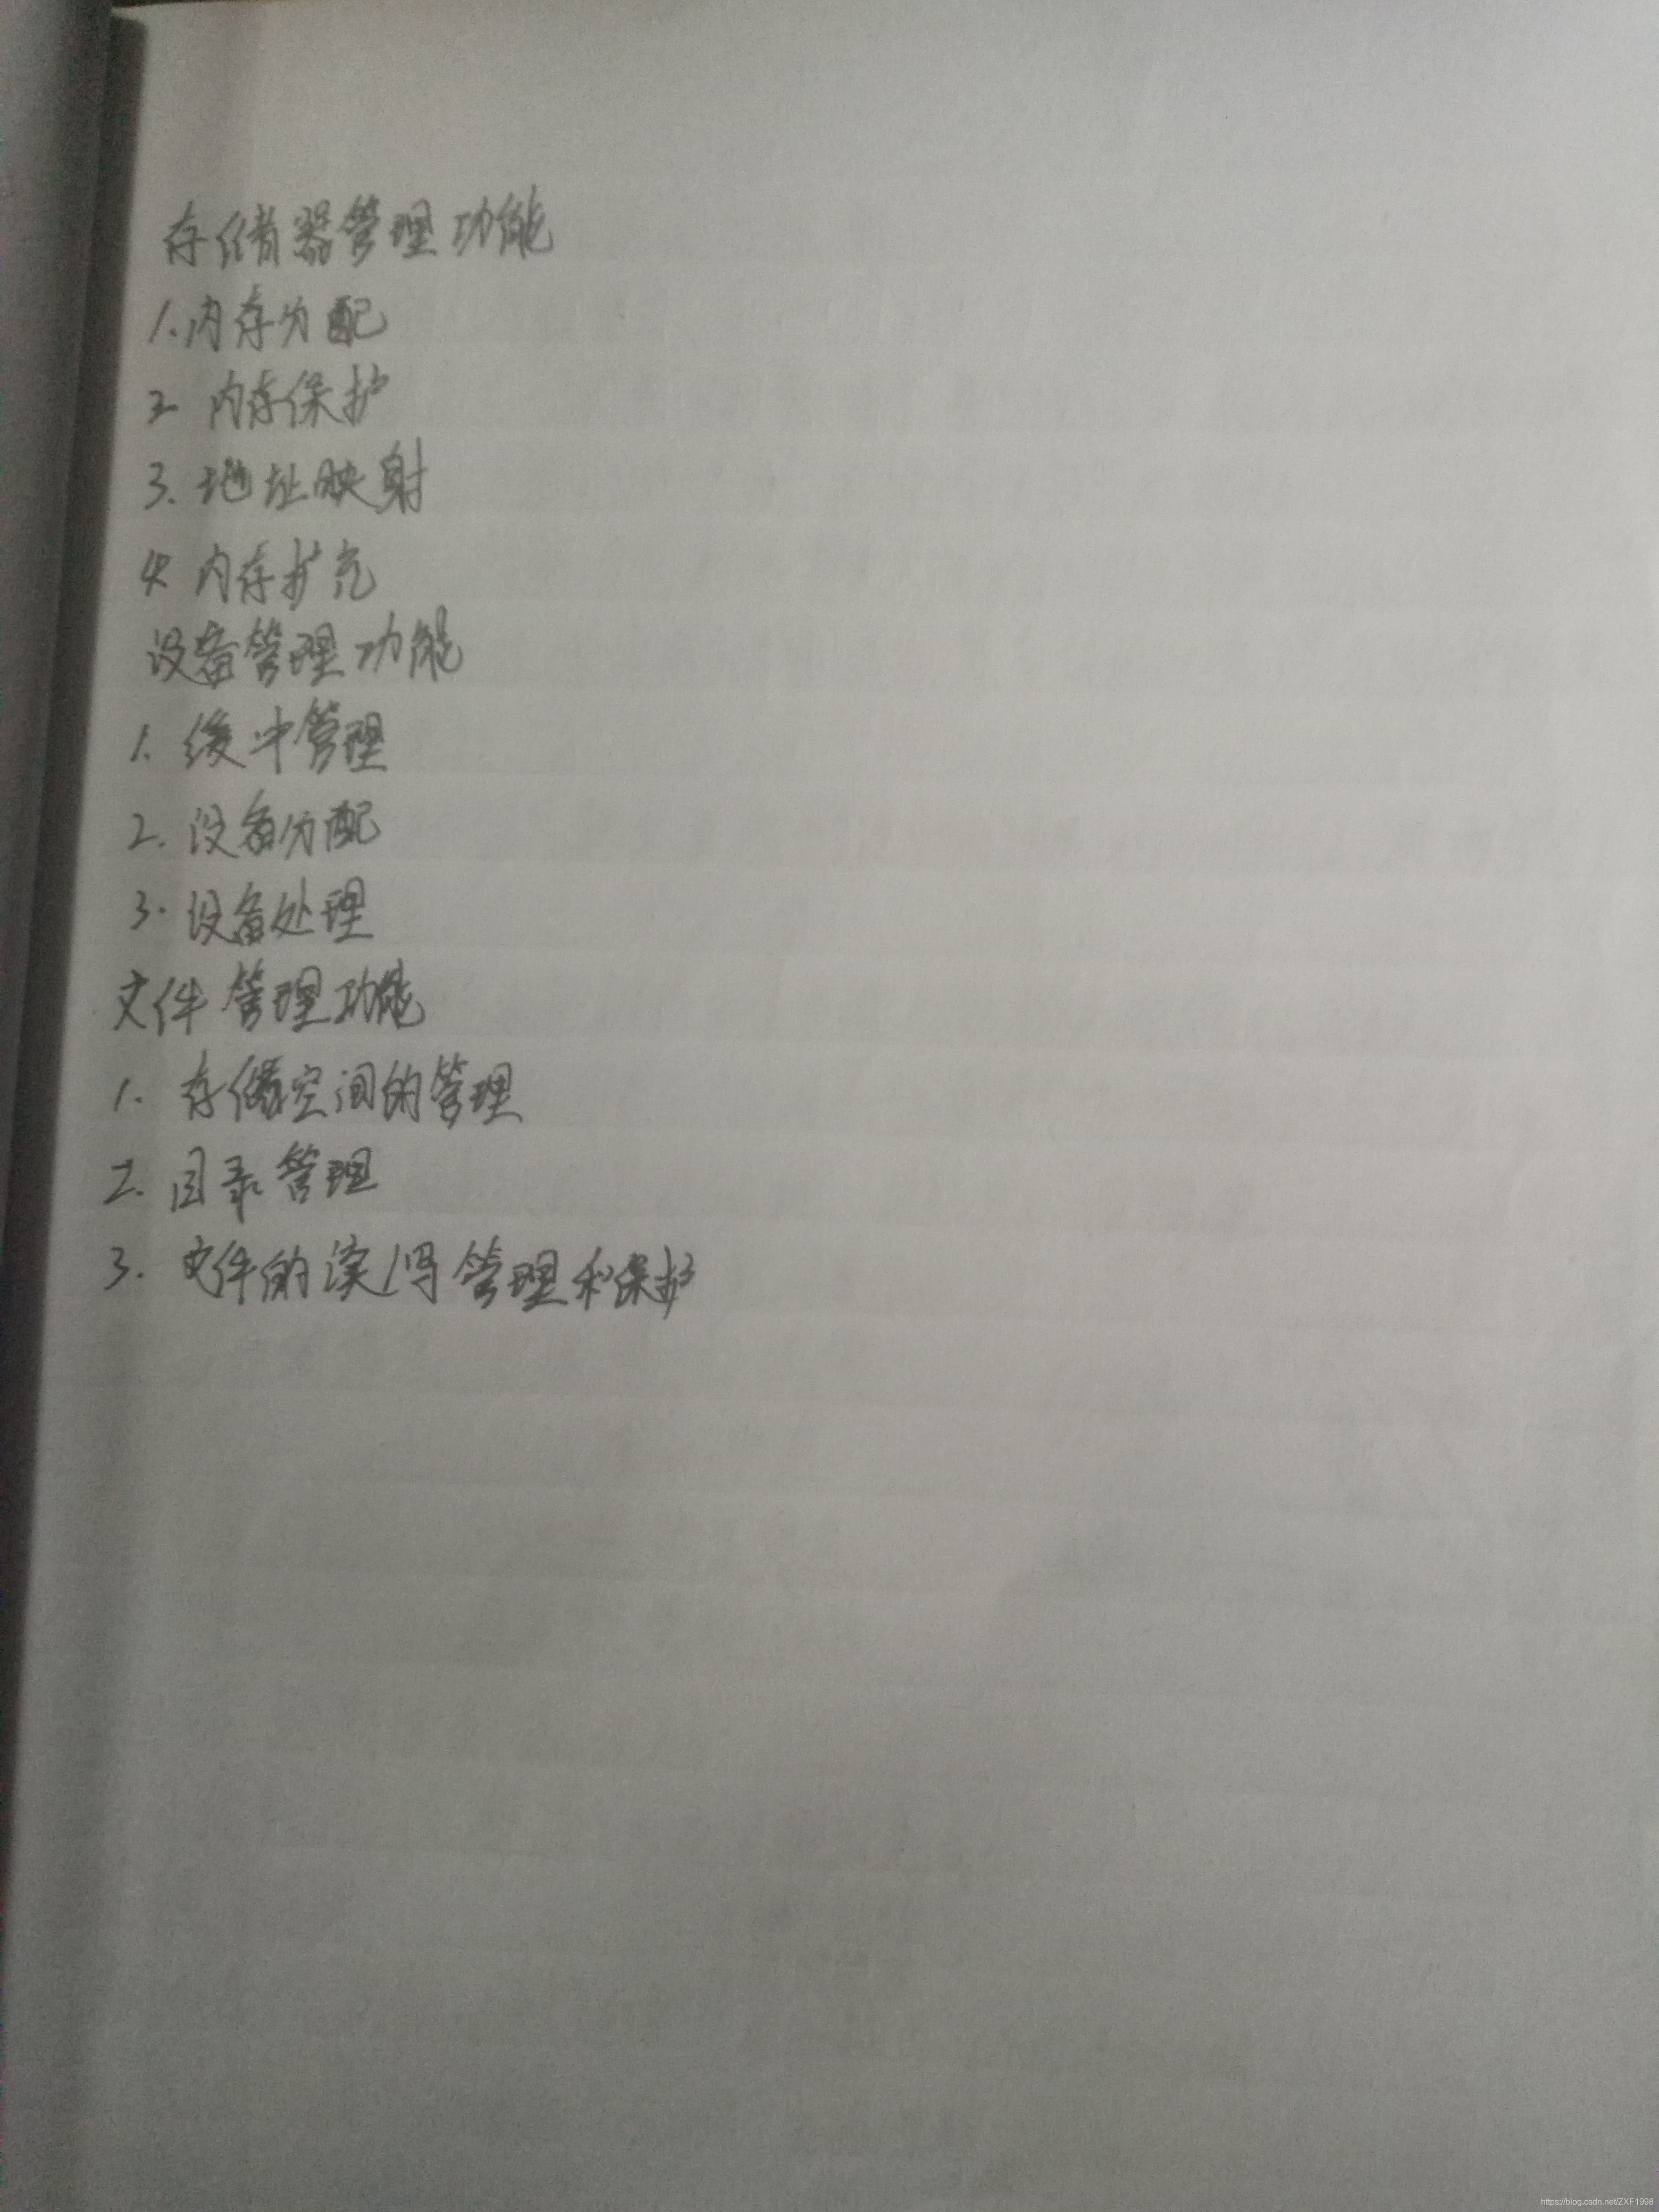 存储器管理功能
1.内存分配
2 内存保护
3.地址映射
4 内存扩充
设备管理功能
1.缓冲管理
2.设备分配
3.设备处理
文件管理功能
1.存储空间的管理
2.目录管理
3.文件的读/写管理和保护
https://blog.csdn.net/ZXF1998